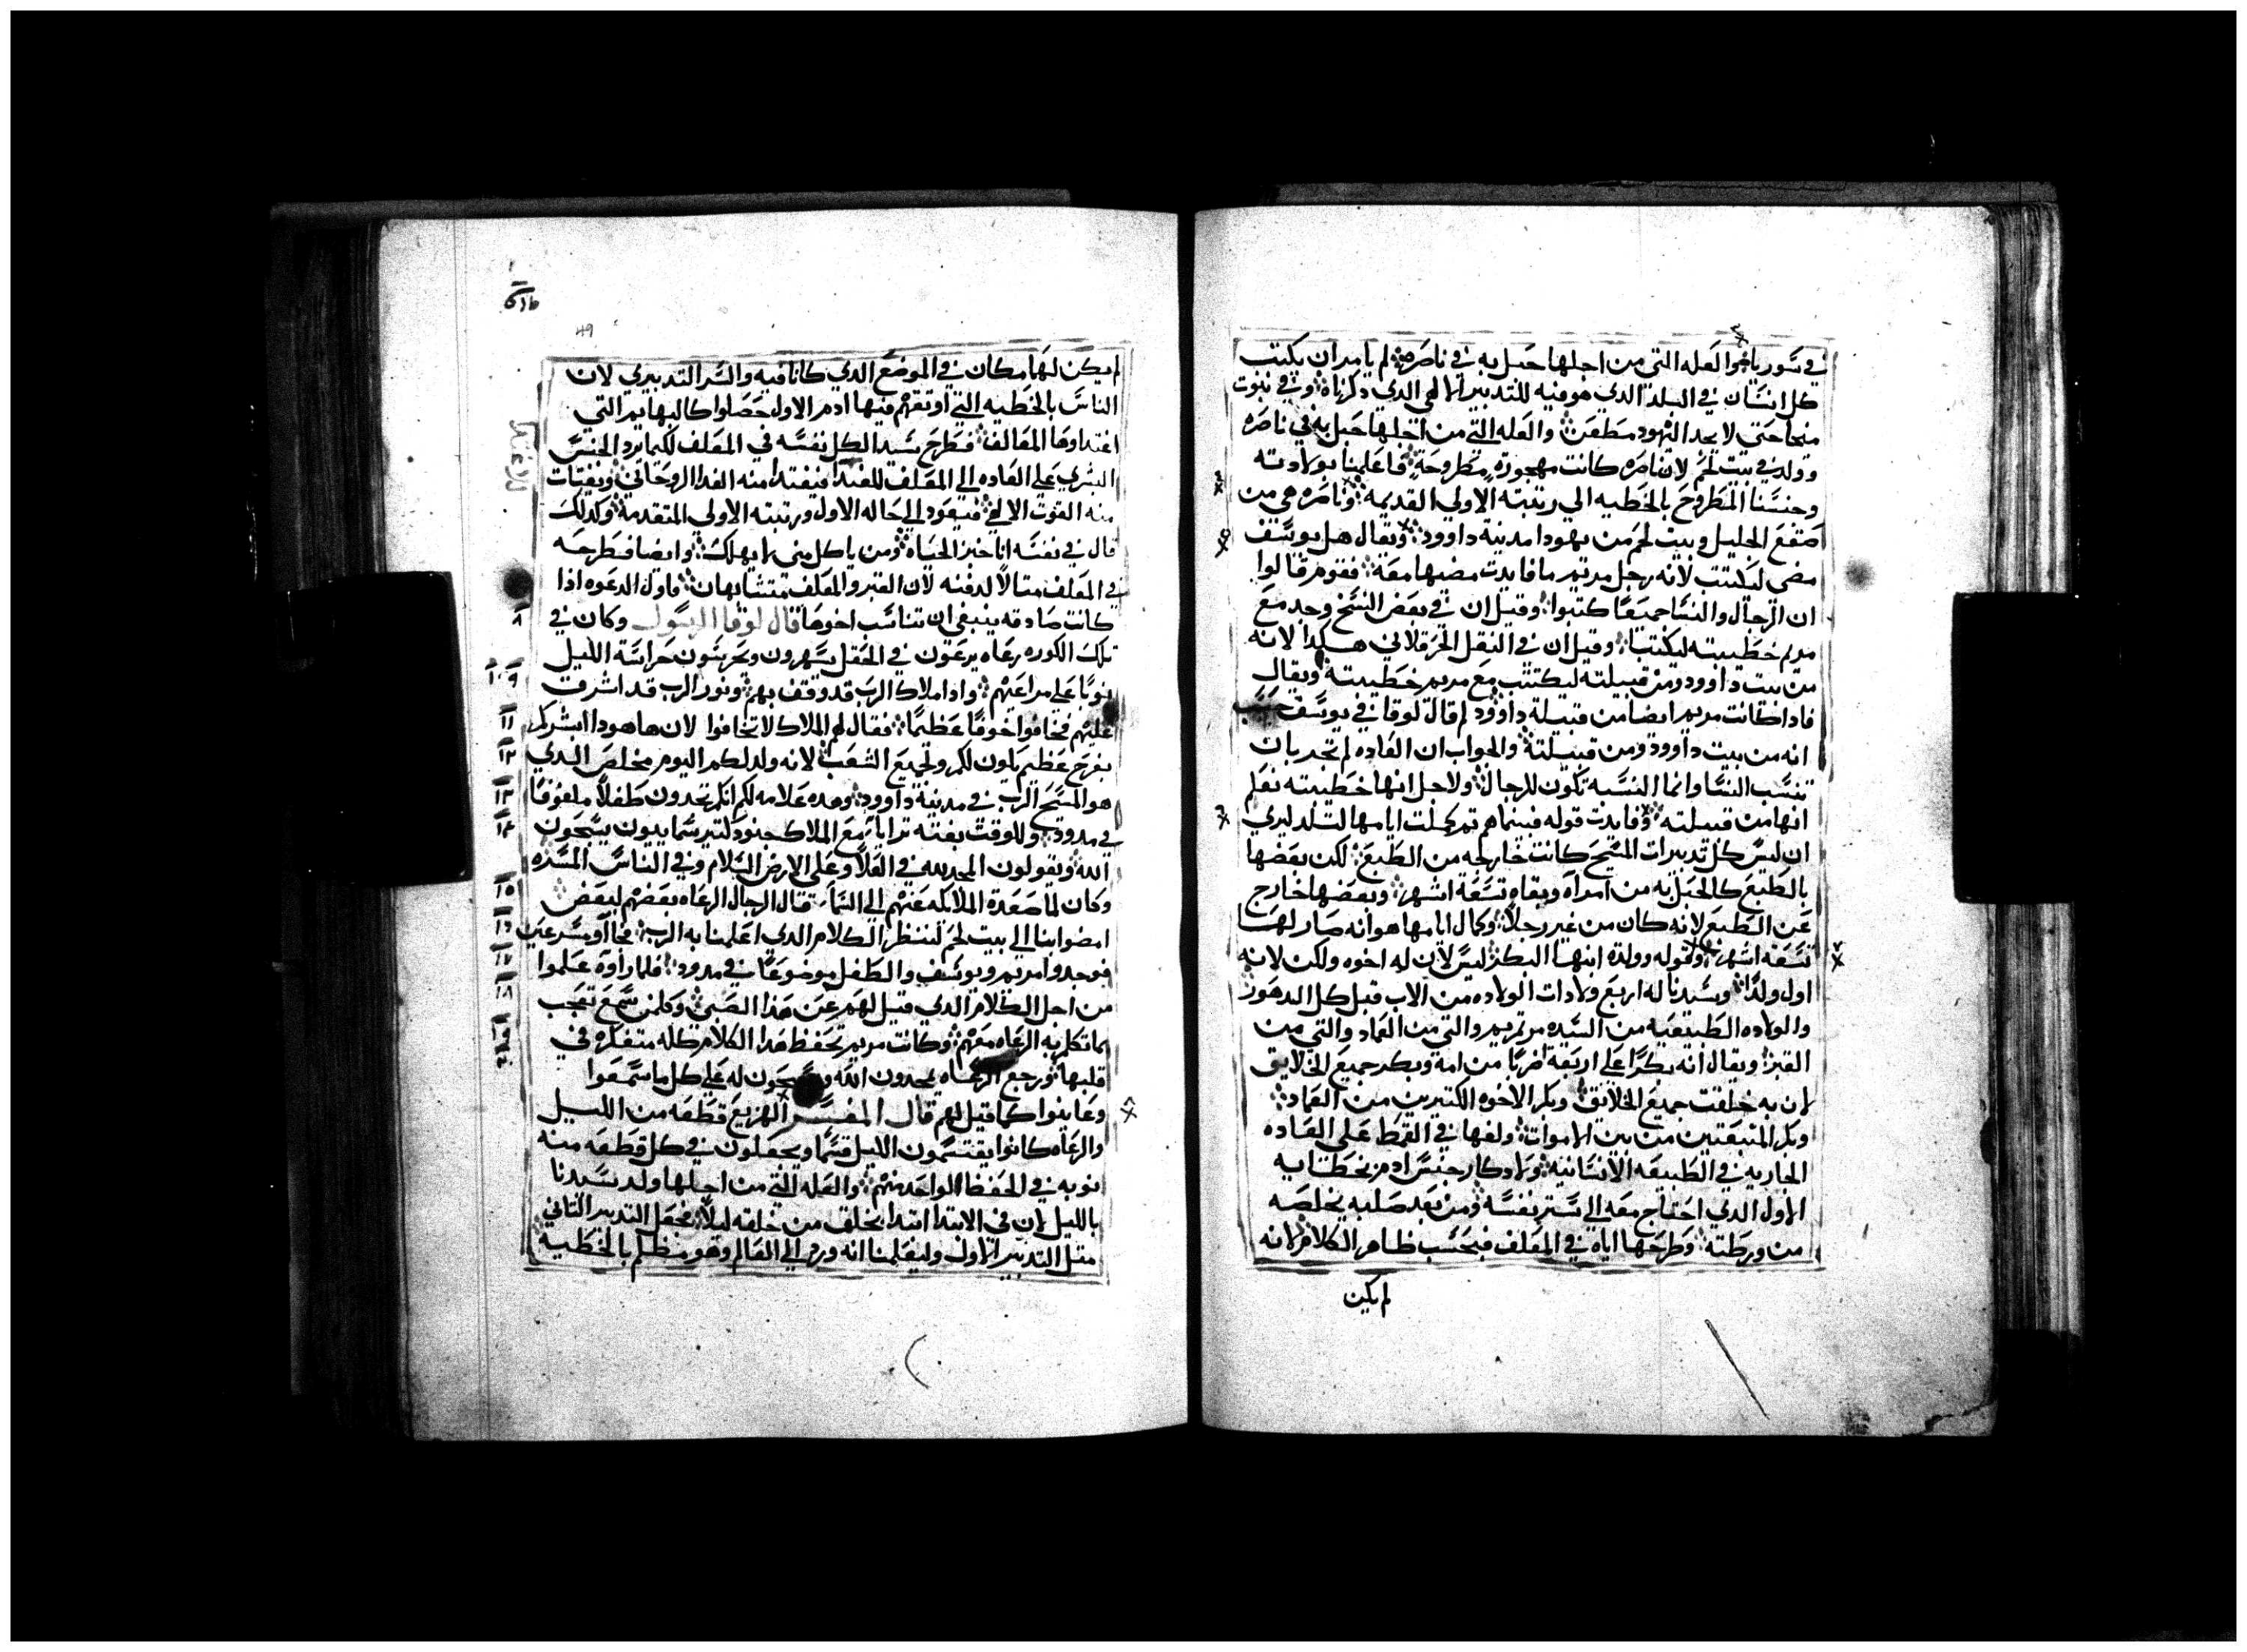 في سوريا والعله التي من اجلها حبل به في ناصره لم يامر ان يكتب
كل انسان في البلد الدي هو فيه للتدبير الالهي الدي دكرناه وفي نبوت
ميخا حتي لا يجد اليهود مطعن والعله التي من اجلها حبل به في ناصره
وولد في بيت لحم لان ناصره كانت مهجورة مطروحة فاعلمنا بولادته
وجنسنا المطروح بالخطيه الي رتبته الاولي القديمه وناصره هي من
صقع الجليل وبيت لحم من يهودا مدينة داوود ويقال هل يوسف
مضي ليكتتب لانه رجل مريم ما فايدت مضيها معه فقوم قالوا
ان الرجال والنسا جميعا كتبوا وقيل ان في بعض النسخ وجد مع
مريم خطيبته ليكتتبا وقيل ان في النقل الحرقلاني هكدا لانه
من بيت داوود ومن قبيلته ليكتتب مع مريم خطيبته ويقال
فادا كانت مريم ايضا من قبيلة داوود لم قال لوقا في يوسف حسب
انه من بيت داوود ومن قبيلته والجواب ان العاده لم تجر بان
تنسب النسا وانما النسبه تكون للرجال ولاجل انها خطيبته نعلم
انها من قبيلته وفايدت قوله فبينما هم تم كملت ايامها لتلد ليري
ان ليس كل تدبيرات المسيح كانت خارجه من الطبع لكن بعضها
بالطبع كالحبل به من امراه وبقاه تسعة اشهر وبعضها خارج
عن الطبع لانه كان من غير رجلا وكمال ايامها هو انه صار لها
تسعة اشهر وقوله وولدة ابنها البكر ليس لان له اخوه ولكن لانه
اول ولدا وسيدنا له اربع ولادات الولاده من الاب قبل كل الدهور
والولاده الطبيعيه من السيده مرتمريم والتي من العماد والتي من
القبر ويقال انه بكرا علي اربعة اضربا من امه وبكر جميع الخلايق
لان به خلقت جميع الخلايق وبكر الاخوه الكتيرين من العماد
وبكر المنبعتين من بين الاموات ولفها في القمط علي العاده
الجاريه في الطبيعه الانسانيه ولادكار جنس ادم بخطايه
الاول الدي احتاج معه الي تستر نفسه ومن بعد صلبه يخلصه
من ورطته وطرحها اياه في المعلف فبحسب ظاهر الكلام لانه
لم يكن
49
لم يكن لها مكان في الموضع الدي كانا فيه والسر التدبيري لان
الناس بالخطيه التي اوتقهم فيها ادم الاول حصلوا كالبهايم التي
اغتداوها المعالف فطرح سيد الكل نفسه في المعلف لكيما يرد الجنس
البشري علي العاده الي المعلف للغدا فيغتدا منه الغدا الروحاني ويقتات
منه القوت الالهي فيعود الي حاله الاول ورتبته الاولي المتقدمه وكدلك
قال في نفسه انا خبز الحياه ومن ياكل مني لا يهلك وايضا فطرحه
في المعلف متالا لدفنه لان القبر والمعلف متشابهان فاول الدعوه ادا
كانت صادقه ينبغي ان تناسب اخرها قال لوقا الرسول وكان في
٨
تلك الكوره رعاه يرعون في الحقل يسهرون ويحرسون حراسة الليل
نوبا علي مراعيهم وادا ملاك الرب قد وقف بهم ونور الرب قد اشرقت
٩ ١٠
عليهم فخافوا خوفا عظيما فقال لهم الملاك لا تخافوا لان هاهودا ابشركم
١١
بفرح عظيم يكون لكم ولجميع الشعب لانه ولد لكم اليوم مخلص الدي
١٢
هو المسيح الرب في مدينة داوود وهده علامه لكم انكم تجدون طفلا ملفوفا
١٣
في مدود وللوقت بغته ترايا مع الملاك جنود كتير سماييون يسبحون
١٤
الله ويقولون المجد لله في العلا وعلي الارض السلام وفي الناس المسره
وكان لما صعدة الملايكه عنهم الي السما قال الرجال الرعاه بعضهم لبعض
١٥
امضوا بنا الي بيت لحم لننظر الكلام الدي اعلمنا به الرب فجاآو مسرعين
١٦
فوجدوا مريم ويوسف والطفل موضوعا في مدود فلما راوه علموا
١٧
من اجل الكلام الدي قيل لهم عن هدا الصبي وكلمن سمع تعجب
١٨
بما تكلم به الرعاه معهم وكانت مريم تحفظ هدا الكلام كله متفكره في
١٩
قلبها ورجع الرعاه يمجدون الله ويسبحون له علي كل ما سمعوا
وعاينوا كما قيل لهم قال المفسر الهزيع قطعه من الليل
والرعاه كانوا يقتسمون الليل قسما ويجعلون في كل قطعه منه
نوبه في الحفظ لواحد منهم والعله التي من اجلها ولد سيدنا
بالليل لان في الابتدا ابتدا بخلق من خلقه ليلا فجعل التدبير التاني
متل التدبير الاول وليعلمنا انه ورد الي العالم وهو مظلم بالخطيه